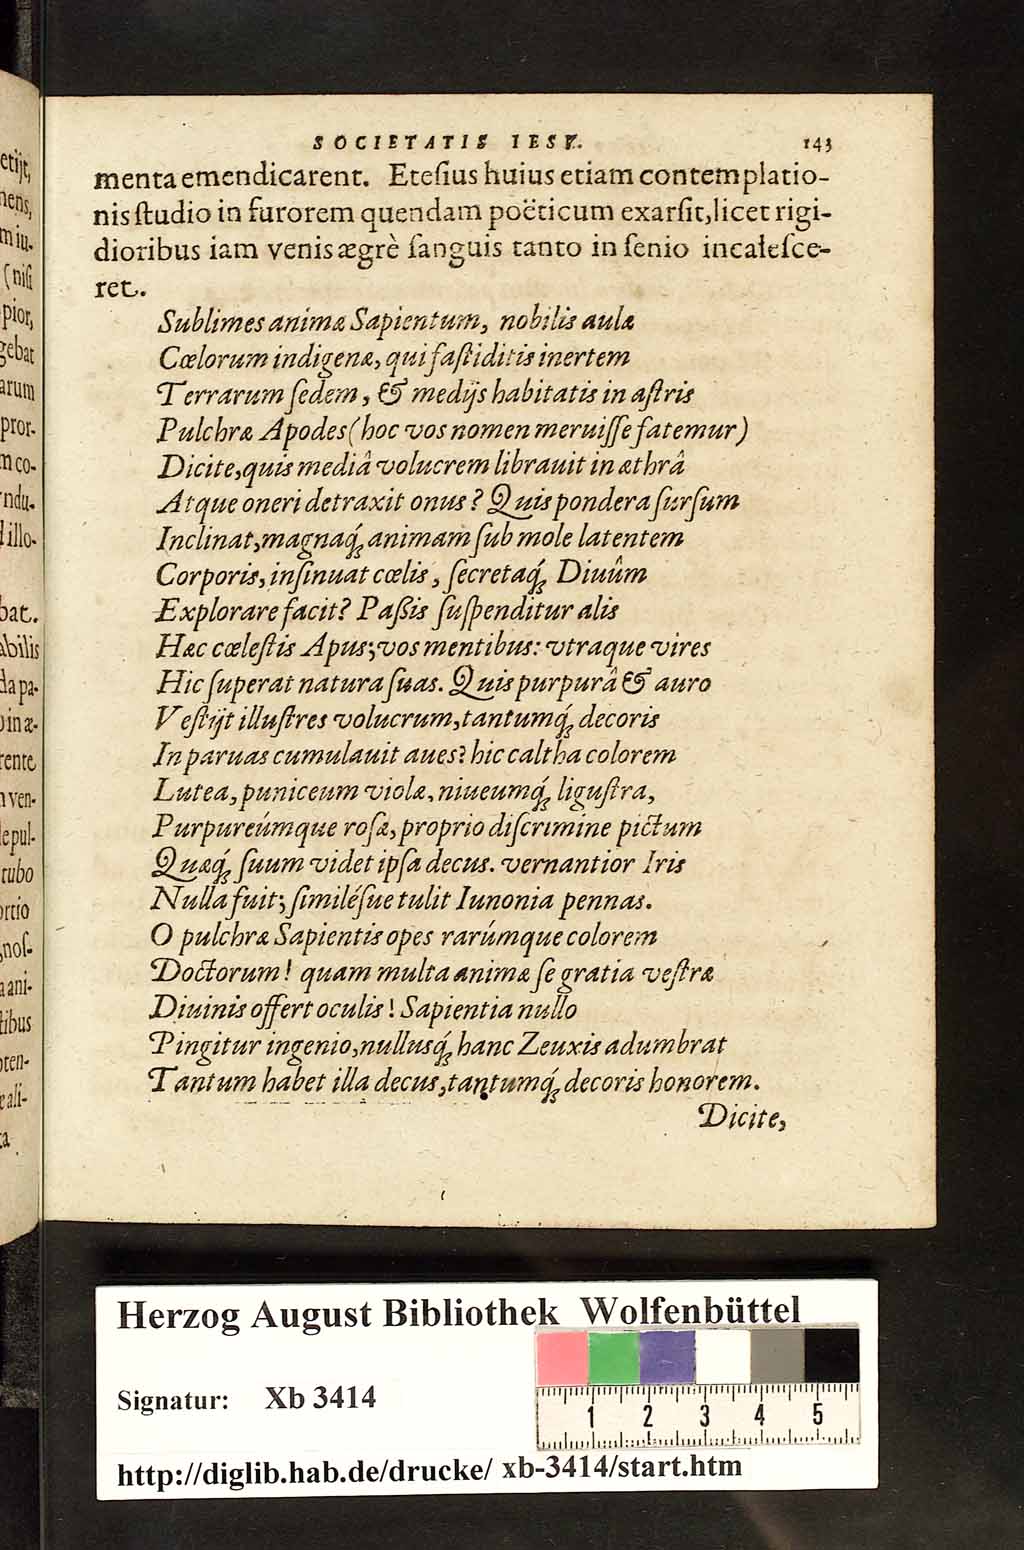 SOCIETATIS IESV. 143
menta emendicarent. Etesius huius etiam contemplatio-
nis ſtudio in furorem quendam poëticum exarſit, licet rigi-
dioribus iam venis ægrè ſanguis tanto in ſenio incaleſce-
ret.
Sublimes animæ Sapientum, nobilis aulæ
Cœlorum indigenæ, qui faſtiditis inertem
Terrarum ſedem, & medijs habitatis in aſtris
Pulchræ Apodes (hoc vos nomen meruiſſe fatemur)
Dicite, quis mediâ volucrem librauit in æthrâ
Atque oneri detraxit onus? Quis pondera ſurſum
Inclinat, magnaq́; animam ſub mole latentem
Corporis, inſinuat cœlis, ſecretaq́; Diuûm
Explorare facit? Paßis ſuſpenditur alis
Hæc cœleſtis Apus; vos mentibus: vtraque vires
Hic ſuperat natura ſuas. Quis purpurâ & auro
Veſtijt illuſtres volucrum, tantumq́; decoris
In paruas cumulauit aues? hic caltha colorem
Lutea, puniceum violæ, niueumq́; liguſtra,
Purpureúmque roſæ, proprio diſcrimine pictum
Quæq́; ſuum videt ipſa decus. vernantior Iris
Nulla fuit; ſimiléſue tulit Iunonia pennas.
O pulchræ Sapientis opes rarúmque colorem
Doctorum! quam multa animæ ſe gratia veſtræ
Diuinis offert oculis! Sapientia nullo
Pingitur ingenio, nullusq́; hanc Zeuxis adumbrat
Tantum habet illa decus, tantumq́; decoris honorem.
Dicite,
etijt,
nens,
m iu-
(niſi
pior,
gebat
arum
pror-
m co-
ndu-
illo-
bat.
abilis
da pa-
in æ-
rente
ven-
le pul-
tubo
ortio
noſ-
a ani-
tibus
oten-
ali-
ta
Herzog August Bibliothek Wolfenbüttel
Signatur: Xb 3414
1 2 3 4 5
http://diglib.hab.de/drucke/ xb-3414/start.htm